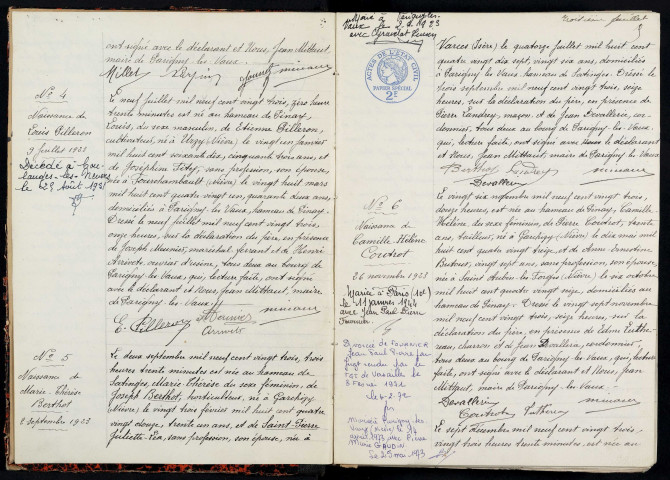 ont signé avec le déclarant et Nous, Jean Mittaut,
maire de Parigny les Vaux.
Millet
N° 4
Naissance de
Louis Pilleron
9 juillet 1923
Décédé à
le 29 août 1981
Le neuf juillet mil neuf cent vingt trois, zéro heure
trente minutes est né au hameau de Pinay,
Louis, du sexe masculin, de Etienne Pilleron,
cultivateur, né à Urzy (Nièvre) le vingt un janvier
mil huit cent soixante dix, cinquante trois ans, et
de Joséphine Petit, sans profession, son épouse,
née à Fourchambault (Nièvre) le vingt huit mars
mil huit cent quatre vingt un, quarante deux ans,
domiciliés à Parigny les Vaux, hameau de Pinay.
Dressé le neuf juillet mil neuf cent vingt trois,
onze heures, sur la déclaration du père, en présence
de Joseph Meunier, maréchal ferrant et de Henri
Arrivot, ouvrier d'usine, tous deux au bourg de
Parigny les Vaux, qui, lecture faite, ont signé
avec le déclarant et Nous, Jean Mittaut, maire
de Parigny les Vaux.
E. Pilleron Meunier
Arrivot
N° 5
Naissance de
Marie-Thérèse
Berthot
2 septembre 1923
Le deux septembre mil neuf cent vingt trois, trois
heures trente minutes est née au hameau de
Satinges, Marie-Thérèse du sexe féminin, de
Joseph Berthot, horticulteur, né à Garchizy
(Nièvre), le vingt trois février mil huit cent quatre
vingt douze, trente un ans, et de
Juliette Léa, sans profession, son épouse, née à
Marié à
Vaux le 2.9.1923
avec
ACTES DE L'ETAT CIVIL
PAPIER SPÉCIAL
2F
Varces (Isère) le quatorze juillet mil huit cent
quatre vingt dix sept, vingt six ans, domiciliés
à Parigny les Vaux, hameau de Satinges. Dressé le
trois septembre mil neuf cent vingt trois, seize
heures, sur la déclaration du père, en présence de
Pierre Landrey, maçon, et de Jean Devallerie, cor-
donnier, tous deux au bourg de Parigny les Vaux,
qui, lecture faite, ont signé avec le déclarant
et Nous, Jean Mittaut, maire de Parigny les Vaux.
Berthot
Devallerie
N° 6
Naissance de
Camille Hélène
Cordrot
26 novembre 1923
Mariée à Paris (10e)
le 11 janvier 1944
avec Jean Paul Pierre
Divorcée de
Jean Paul Pierre par
jugement rendu par le
TGI de Versailles le
le 4.2.72
Le vingt six novembre mil neuf cent vingt trois,
douze heures, est née au hameau de Pinay, Camille
Hélène, du sexe féminin, de Pierre Cordrot, vingt
ans, tailleur, né à Garchizy (Nièvre) le dix mai
mil huit cent quatre vingt treize, et de Anne Ernestine
Buteux, vingt sept ans, sans profession, son épouse,
née à Saint Aubin les Forges (Nièvre) le six octobre
mil huit cent quatre vingt seize, domiciliés au
hameau de Pinay. Dressé le vingt sept novembre
mil neuf cent vingt trois, seize heures, sur la
déclaration du père, en présence de
charron et de Jean Devallerie, cordonnier,
tous deux au bourg de Parigny les Vaux, qui, lecture
faite, ont signé avec le déclarant et Nous, Jean
Mittaut, maire de Parigny les Vaux.
Devallerie
Cordrot
Le sept décembre mil neuf cent vingt trois,
vingt trois heures trente minutes, est née au